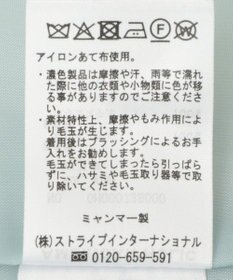 アイロンあて布使用。
・濃色製品は摩擦や汗、雨等で濡れ
た際に他の衣類や小物類に色が移
る事が有りますのでご注意くださ
い。
・素材特性上、摩擦やもみ作用によ
り毛玉が生じます。
着用後はブラッシングによるお手
入れをお勧めします。
毛玉ができてしまったら引っぱら
ずに、ハサミや毛玉取り器等で取
り除いてください。
ミャンマー製
(株)ストライプインターナショナル
0120-659-591